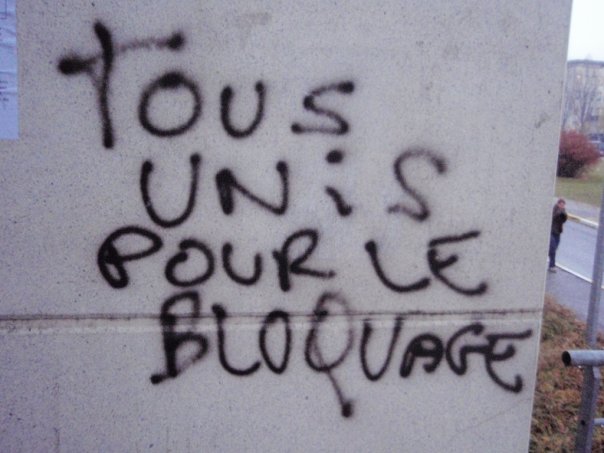 TOUS
UNiS
POUR LE
BLOQUAGE